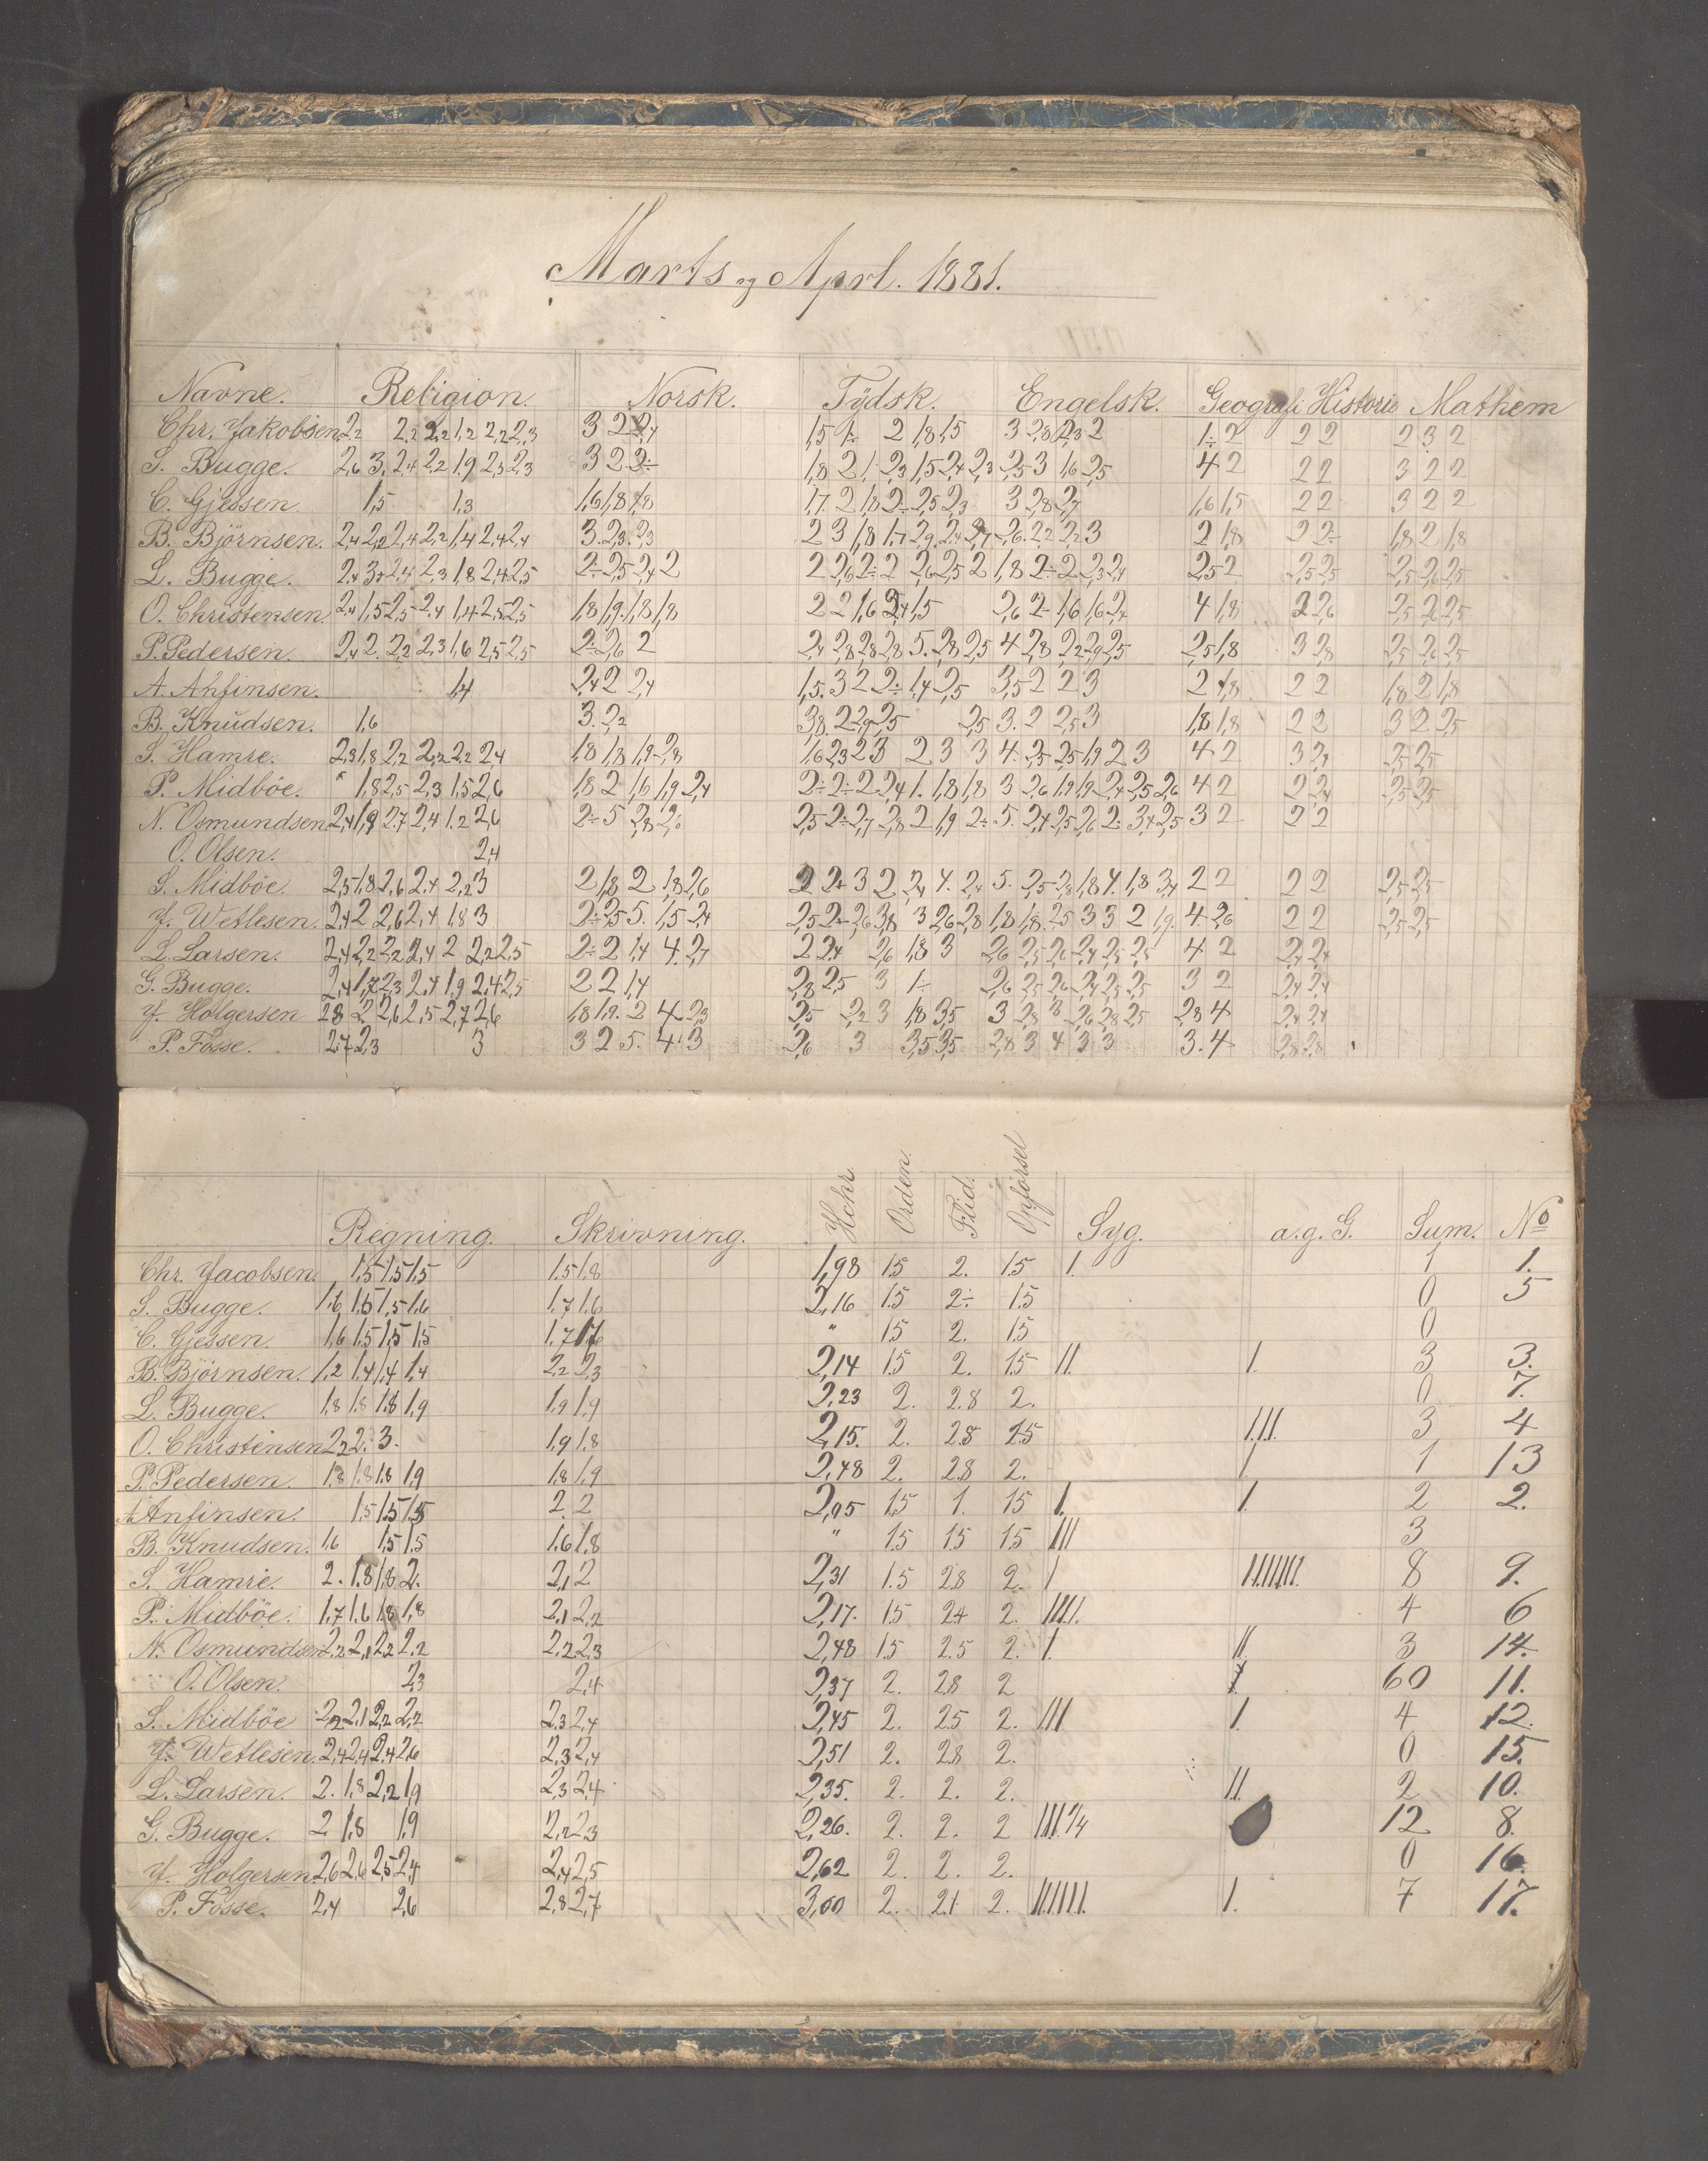 Marts og Aprl. 1881.
Navne. Religion. Norsk. Tÿdsk. Engelsk. Geografi Historie Mathem
Chr. Jakobsen 2,2 2,2 2,2 1,2 2,2 2,3 3 2 2,4 1,5 1÷ 2 1,8 1,5 3 2,8 2,3 2 1÷ 2 2 2 2 3 2
S. Bugge. 2,6 3, 2,4 2,2 1,9 2,3 2,3 3 2 2÷ 1,8 2 1, 2,3 1,5 2,4 2,3 2,5 3 1,6 2,5 4 2 2 2 3 2 2
C. Gjessen 1,5 1,3 1,6 1,8 1,8 1,7 2 1,8 2÷ 2,5 2,3 3 2,8 2,7 1,6 1,5 2 2 3 2 2
B. Björnsen. 2,4 2,2 2,4 2,2 1,4 2,4 2,4 3. 2,3. 2,3 2 3 1,8 1,7 2,9 2,4 2,7 2,6 2,2 2,2 3 2 1,8 2 2÷ 1,8 2 1,8
L. Bugge. 2,4 3÷ 2,4 2,3 1,8 2,4 2,5 2÷ 2,5 2,4 2 2 2,6 2÷ 2 2,6 2,5 2 1,8 2÷ 2 2,3 2,4 2,5 2 2,5 2,5 2,5 2,6 2,5
O. Christensen. 2,4 1,5 2,5 2,4 1,4 2,5 2,5 1,8 1,9 1,8 1,8 2 2 1,6 2,4 1,5 2,6 2÷ 1,6 1,6 2,4 4 1,8 2 2,6 2,5 2,6 2,5
P. Pedersen. 2,4 2. 2,2 2,3 1,6 2,5 2,5 2÷ 2,6 2 2,4 2,8 2,8 2,8 5. 2,8 2,5 4 2,8 2,2 2,9 2,5 2,5 1,8 3 2,8 2,5 2,6 2,5
A. Anfinsen. 1,4 2,4 2 2,4 1,5. 3 2 2÷ 1,4 2,5 3,5 2 2 3 2 1,8 2 2 1,8 2 1,8
B. Knudsen. 1,6 3. 2,2 3,8. 2 2,9 2,5 2,5 3. 2 2,5 3 1,8 1,8 2 2 3 2 2,5
S. Hamre. 2,3 1,8 2,2 2,2 2,2 2,4 1,8 1,8 1,9 2,8 1,6 2,3 2 3 2 3 3 4÷ 2,5 2,5 1,9 2 3 4 2 3 2,8 2,5 2,5
P. Midböe. " 1,8 2,5 2,3 1,5 2,6 1,8 2 1,6 1,9 2,4 2÷ 2÷ 2 2,4 1. 1,8 1,8 3 2,6 1,9 1,9 2,4 2,5 2,6 4 2 2 2,4 2,5 2,5
N. Osmundsen 2,4 1,9 2,7 2,4 1,2 2,6 2÷ 5 2,8 2,6 2,5 2÷ 2,7 2,8 2 1,9 2÷ 5. 2,4 2,5 2,6 2÷ 3,4 2,5 3 2 2 2
O. Olsen. 2,4
S. Midböe. 2,5 1,8 2,6 2,4 2,2 3 2 1,8 2 1,8 2,6 2 2÷ 3 2 2,4 4. 2,4 5. 2,5 2,8 1,8 4. 1,8 3,4 2 2 2 2 2,5 2,5
J. Wetlesen. 2,4 2 2,6 2,4 1,8 3 2÷ 2,5 5. 1,5 2,4 2,5 2÷ 2,6 3,8 3 2,6 2,8 1,8 1,8 2,5 3 3 2 1,9. 4. 2,6 2 2 2,5 2,5
L. Larsen. 2,4 2,2 2,2 2,4 2 2,2 2,5 2÷ 2 1,4 4. 2,7 2 2,4 2,6 1,8 3 2,6 2,5 2,6 2,4 2,5 2,5 4 2 2,4 2,4
G. Bugge. 2,4 1,7 2,3 2,4 1,9 2,4 2,5 2 2 1,4 2,8 2,5 3 1÷ 2,6 2,5 2,6 2,4 2,5 2,5 3 2 2,4 2,4
J. Holgersen 2,8 2 2,6 2,5 2,7 2,6 1,8 1,9. 2 4 2,3 2,5 2,2 3 1,8 3,5 3 2,8 3 2,6 2,8 2,5 2,8 4 2,4 2,4
P. Fosse. 2,7 2,3 3 3 2 5. 4. 3 2,6 3 3,5 3,5 2,8 3 4 3 3 3. 4 2,8 2,8
Regning. Skrivning. Hchr Orden. Flid. Opförsel Syg. a. g. G. Sum. No
Chr. Jacobsen. 1,5 1,5 1,5 1.5 1,8 1,98 1.5 2. 1.5 1. 1 1.
S. Bugge. 1,6 1,5 1,5 1,6 1.7 1,6 2,16 1.5 2÷ 1.5 0 5
C. Gjessen. 1,6 1,5 1,5 1,5 1.7 1,6 " 1.5 2. 1.5 0
B. Björnsen. 1,2 1,4 1,4 1,4 2,2 2,3 2,14 1.5 2. 1.5 11. 1. 3 3.
L. Bugge. 1,8 1,8 1,8 1,9 1,9 1,9 2,23 2. 2.8 2. 0 7.
O. Christensen 2,2 2. 3. 1.9 1,8 2,15. 2. 2.8 2.5 111. 3 4
P. Pedersen. 1,8 1,8 1,8 1,9 1,8 1,9 2,48 2. 2.8 2. 1 1 13
A. Anfinsen. 1,5 1,5 1,5 2. 2 2,05 1.5 1. 1.5 1. 1. 2 2.
B. Knudsen. 1,6 1,5 1,5 1.6 1,8 " 1.5 1.5 1.5 111 3
S. Hamre. 2. 1.8 1,8 2. 2,1 2 2,31 1.5 2.8 2. 1 1111111. 8 9.
P. Midböe. 1,7 1,6 1,8 1,8 2,1 2,2 2,17. 1.5 2.4 2. 1111. 4 6
N. Osmundsen 2,2 2,1 2,2 2,2 2,2 2,3 2,48 1.5 2.5 2. 1. 11 3 14.
O. Olsen. 2,3 2,4 2,37 2. 2.8 2 60 11.
S. Midböe 2,2 2,1 2,2 2,2 2.3 2,4 2,45 2. 2.5 2. 111 1. 4 12.
J. Wetlesen. 2,4 2,4 2,4 2,6 2,3 2,4 2,51 2. 2.8 2. 0 15.
L. Larsen. 2. 1,8 2,2 1,9 2,3 2,4 2,35. 2. 2. 2. 11. 2 10.
G. Bugge. 2 1,8 1,9 2,2 2,3 2,26. 2. 2. 2 12 8.
J. Holgersen. 2,6 2,6 2,5 2,4 2,4 2,5 2,62 2. 2. 2. 0 16.
P. Fosse. 2,4 2,6 2,8 2,7 3,00 2. 2.1 2. 111111. 1. 7 17.